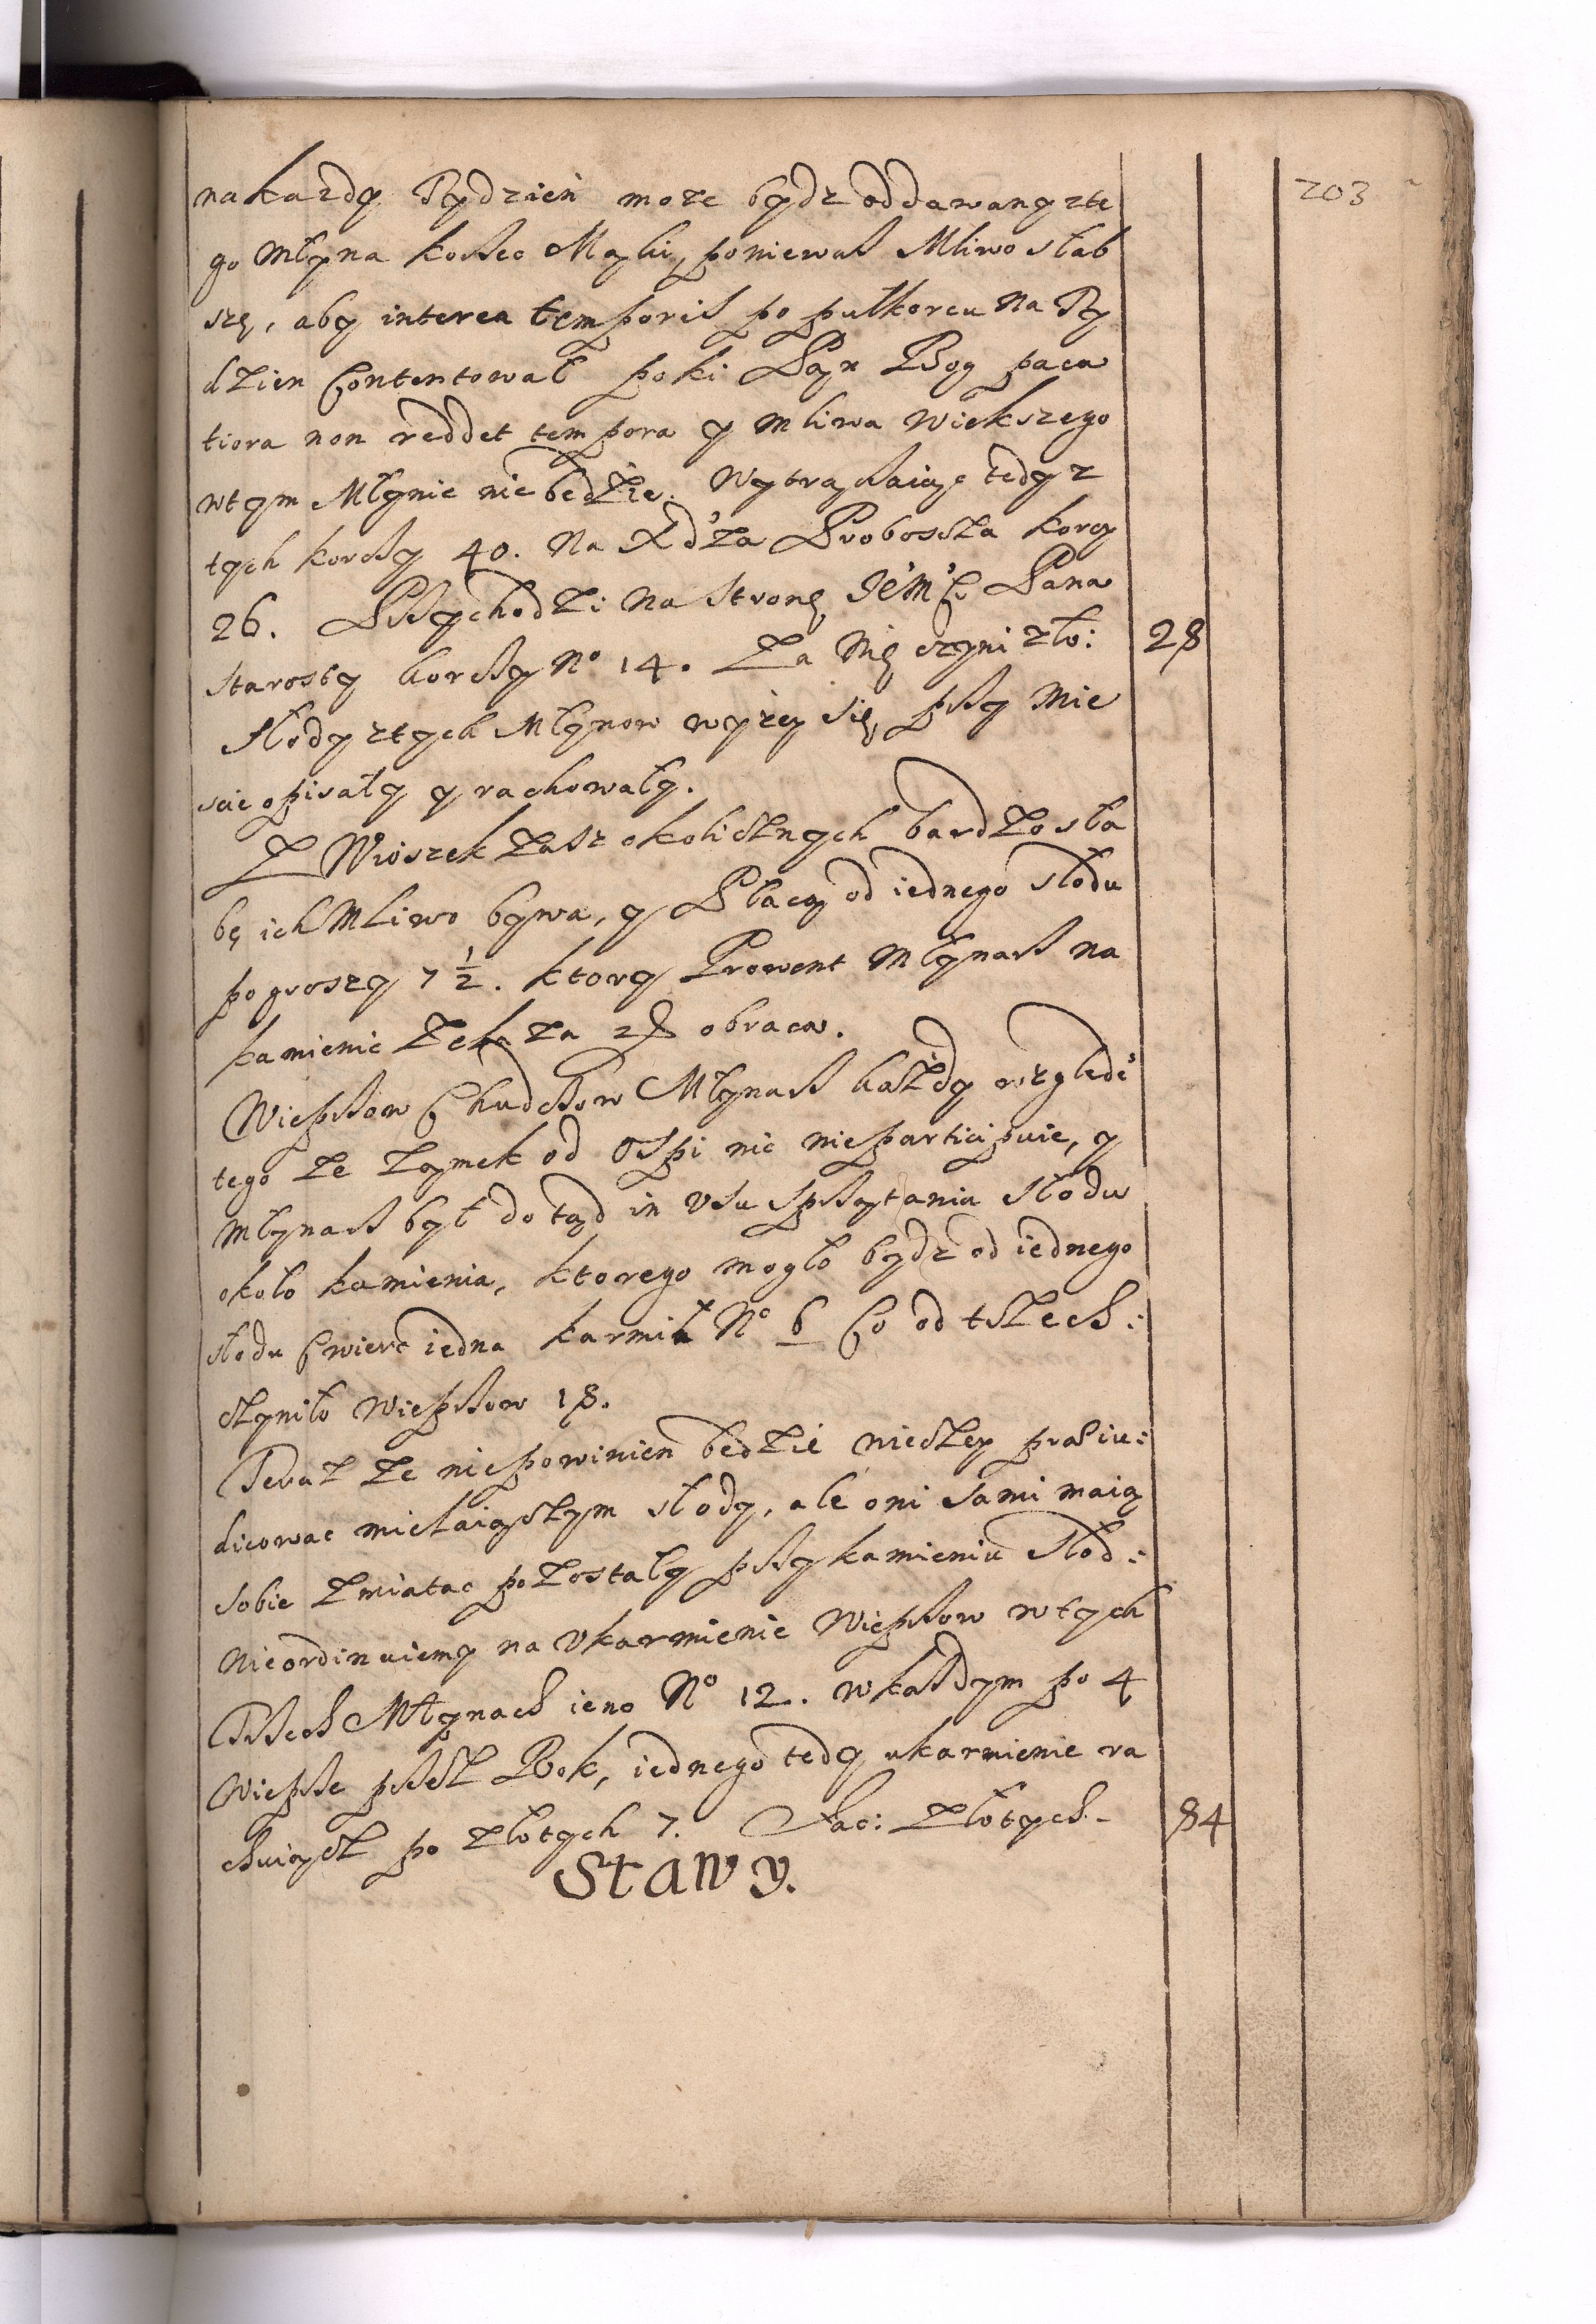 203
na kazdy Tydzień moze bydz oddawany z te
go Młyna korzec Mąki, poniewasz Mliwo słab
sze, aby interea temporis po pułkorcu na Ty
dzien Contentował poki Pan Bog paca
tiora non reddet tempora y mliwa wiekszego
w tym Młynie nie będzie. Wytrąsaiąc tedy z
tych korczy 40. Na Xdza Proboszcza korcy
26. Przychodzi na stronę JeMC Pana
Starosty korczy No 14. Za Mę czyni zło: 28
Słody z tych Młynow wyżey się przy Mie
scie opisały y rachowały.
Z Wiosek zasz okolicznych bardzo sła
bę ich Mliwo bywa, y Płacą od iednego słodu
po groszy 7 1/2. ktory Prowent Młynarz na
kamienie Zeka za 28 obraca.
Wieprzow Chudszow Młynarz każdy względe
tego ze Zamek od Ospi nic nieparticipuie, y
Młynarz był do tąd in Usu sprzątania Słodu
około kamienia, ktorego mogło bydz od iednego
słodu Cwierc iedna karmił No 6 Co od trzech:
czyniło Wieprzow 18.
Teraz ze niepowinien będzie nieczey praeiu:
dicowac mielaiączym słody, ale oni sami maią
sobie Zmiatac pozostały przy kamieniu Słod:
Nieordinuiemy na Ukarmienie Wieprzow w tych
Trzech Młynach ieno No 12. w kaszdym po 4
Wieprze przesz Rok, iednego tedy ukarmienie ra
chuiącz po Złotych 7. Fac: Złotych - 84
Stawy.